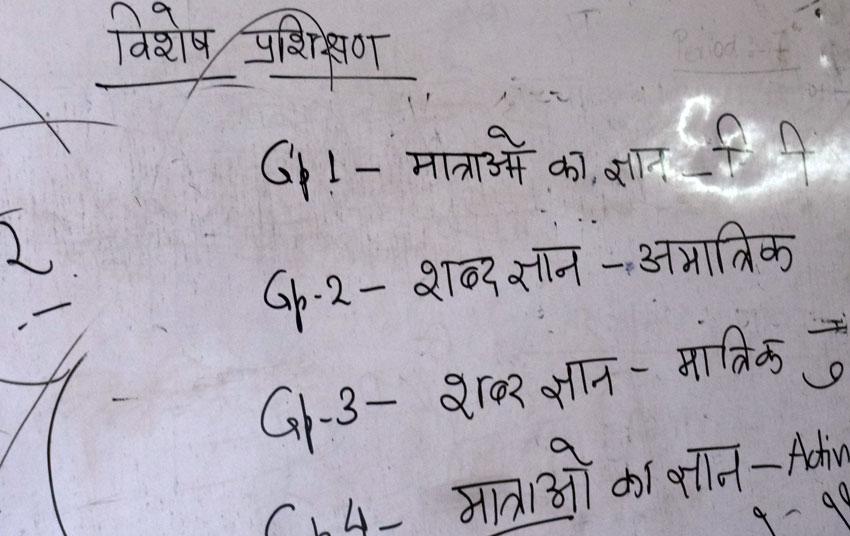 विशेष प्रशिक्षण
Period :-
Gp 1 - मात्राओं का ज्ञान - ि ी
2
Gp-2 - शब्द ज्ञान - अमात्रिक
Gp-3 - शब्द ज्ञान - मात्रिक
Gp 4 - मात्राओं का ज्ञान -